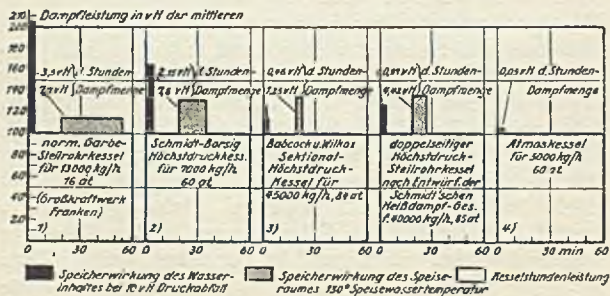 Dampfleistung in vH der mittleren
3,5 vH d. Stunden-
7,7 vH Dampfmenge
norm. Garbe-
Steilrohrkessel
für 13000 kg/h
16 at
(Großkraftwerk
Franken)
1)
vH d. Stunden-
7,8 vH Dampfmenge
Schmidt-Borsig
Höchstdruckkess.
für 7000 kg/h
60 at
2)
vH d. Stunden-
vH Dampfmenge
Babcock u. Wilkox
Sektional-
Höchstdruck-
Kessel für
45000 kg/h, 84 at
3)
vH d. Stunden-
vH Dampfmenge
doppelseitiger
Höchstdruck-
Steilrohrkessel
nach Entwurf der
Schmidt'schen
Heißdampf-Ges.
f. 40000 kg/h, 85 at
0,05 vH d. Stunden-
Dampfmenge
Atmoskessel
für 5000 kg/h
60 at
4)
0 30 60 0 30 60 0 30 60 0 30 60 0 30 min 60
Speicherwirkung des Wasser-
inhaltes bei 10 vH Druckabfall
Speicherwirkung des Speise-
raumes 130° Speisewassertemperatur
Kesselstundenleistung